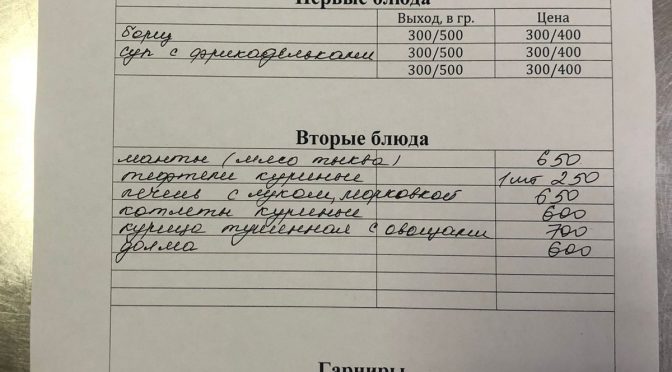 Первые блюда
Выход, в гр. Цена
борщ 300/500 300/400
суп с фрикадельками 300/500 300/400
300/500 300/400
Вторые блюда
манты (мясо тыква) 650
тефтели куриные 1 шт 250
печень с луком, морковкой 650
котлеты куриные 600
курица тушенная с овощами 700
долма 600
Гарниры